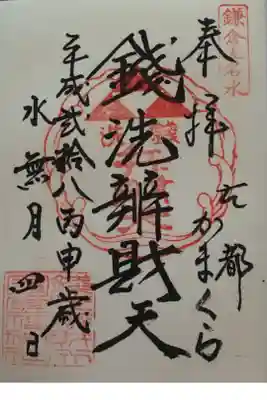 奉拝
古都
かまくら
銭洗辨財天
平成弐拾八丙申歳
水無月四日
鎌倉五名水